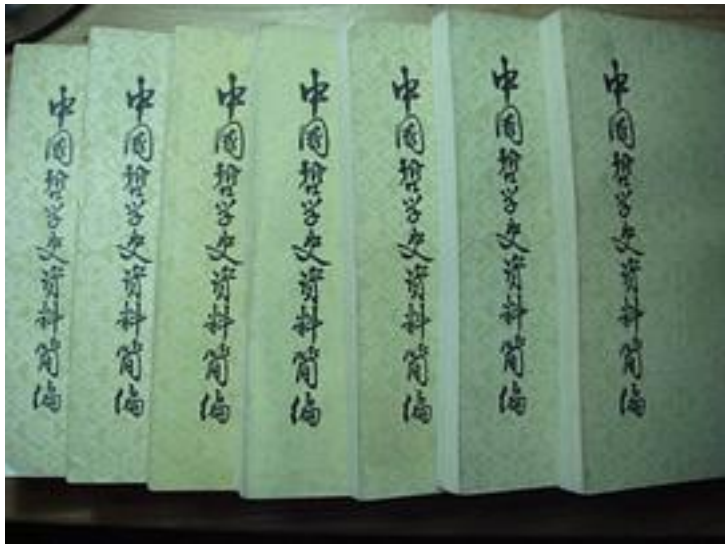 中國哲学史资料简编
中國哲学史资料简编
中國哲学史资料简编
中國哲学史资料简编
中國哲学史资料简编
中國哲学史资料简编
中國哲学史资料简编